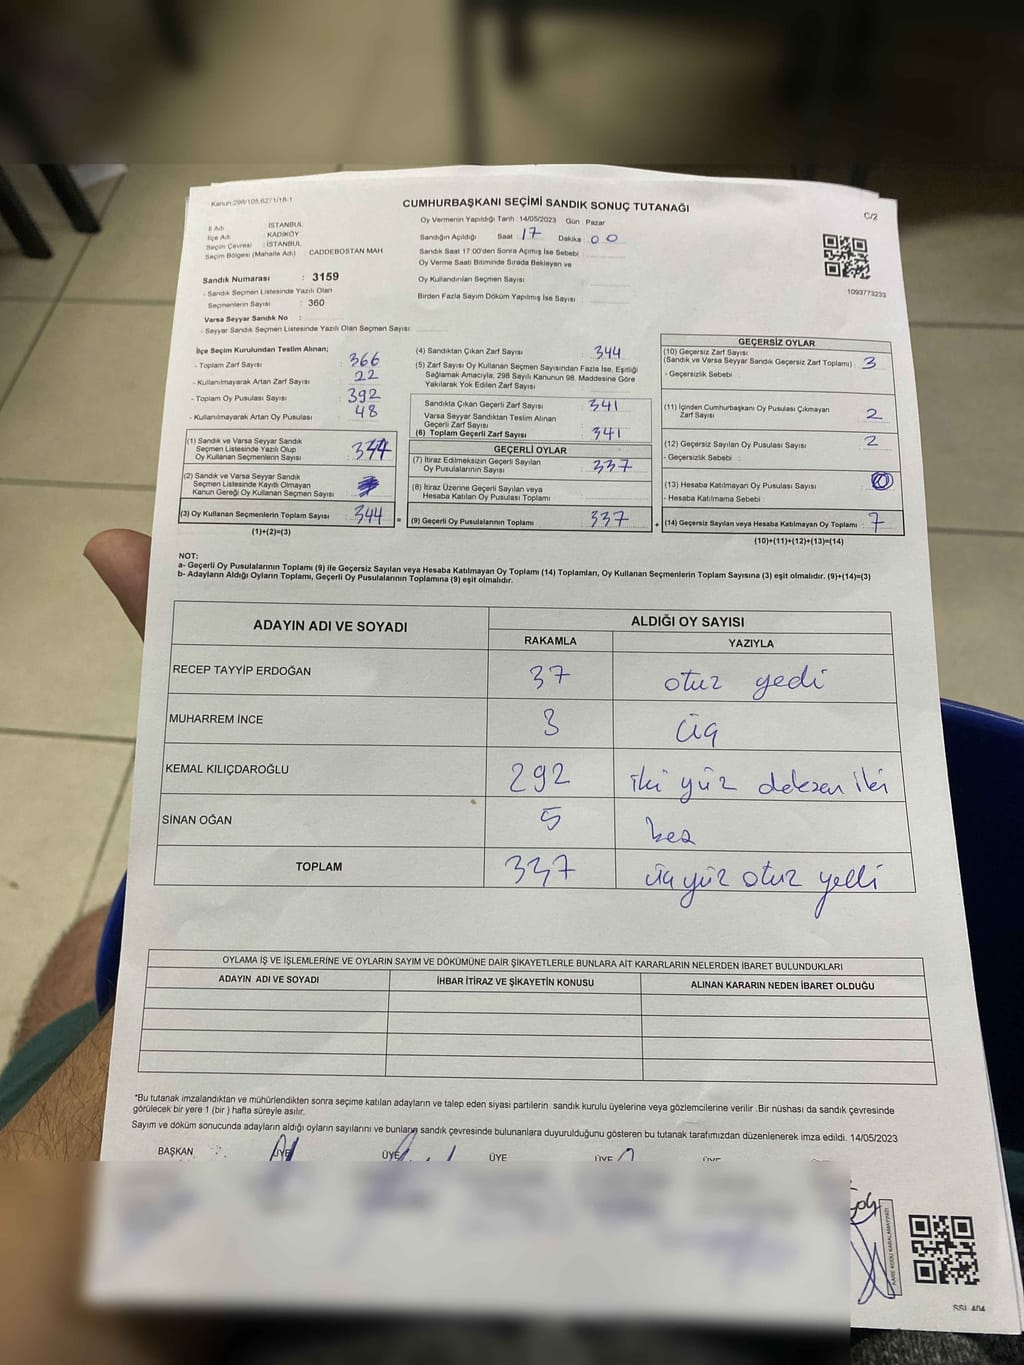 Kanun:298/105,6271/18-1
CUMHURBAŞKANI SEÇİMİ SANDIK SONUÇ TUTANAĞI
C/2
İl Adı : İSTANBUL
İlçe Adı : KADIKÖY
Seçim Çevresi : İSTANBUL
Seçim Bölgesi (Mahalle Adı) : CADDEBOSTAN MAH
Sandık Numarası : 3159
- Sandık Seçmen Listesinde Yazılı Olan
Seçmenlerin Sayısı : 360
Varsa Seyyar Sandık No :
- Seyyar Sandık Seçmen Listesinde Yazılı Olan Seçmen Sayısı:
Oy Vermenin Yapıldığı Tarih : 14/05/2023 Gün : Pazar
Sandığın Açıldığı Saat : 17 Dakika : 00
Sandık Saat 17:00'den Sonra Açımış İse Sebebi :
Oy Verme Saati Bitiminde Sırada Bekleyen ve
Oy Kullandırılan Seçmen Sayısı
Birden Fazla Sayım Döküm Yapılmış İse Sayısı :
1093773233
İlçe Seçim Kurulundan Teslim Alınan;
- Toplam Zarf Sayısı : 366
- Kullanılmayarak Artan Zarf Sayısı : 22
- Toplam Oy Pusulası Sayısı : 392
- Kullanılmayarak Artan Oy Pusulası : 48
(1) Sandık ve Varsa Seyyar Sandık
Seçmen Listesinde Yazılı Olup
Oy Kullanan Seçmenlerin Sayısı : 344
(2) Sandık ve Varsa Seyyar Sandık
Seçmen Listesinde Kayıtlı Olmayan
Kanun Gereği Oy Kullanan Seçmen Sayısı :
(3) Oy Kullanan Seçmenlerin Toplam Sayısı : 344 =
(1)+(2)=(3)
(4) Sandıktan Çıkan Zarf Sayısı : 344
(5) Zarf Sayısı Oy Kullanan Seçmen Sayısından Fazla İse, Eşitliği
Sağlamak Amacıyla, 298 Sayılı Kanunun 98. Maddesine Göre
Yakılarak Yok Edilen Zarf Sayısı :
Sandıkta Çıkan Geçerli Zarf Sayısı : 341
Varsa Seyyar Sandıktan Teslim Alınan
Geçerli Zarf Sayısı :
(6) Toplam Geçerli Zarf Sayısı : 341
GEÇERLİ OYLAR
(7) İtiraz Edilmeksizin Geçerli Sayılan
Oy Pusulalarının Sayısı : 337
(8) İtiraz Üzerine Geçerli Sayılan veya
Hesaba Katılan Oy Pusulası Toplamı :
(9) Geçerli Oy Pusulalarının Toplamı : 337 +
GEÇERSİZ OYLAR
(10) Geçersiz Zarf Sayısı
(Sandık ve Varsa Seyyar Sandık Geçersiz Zarf Toplamı) : 3
- Geçersizlik Sebebi :
(11) İçinden Cumhurbaşkanı Oy Pusulası Çıkmayan
Zarf Sayısı : 2
(12) Geçersiz Sayılan Oy Pusulası Sayısı : 2
- Geçersizlik Sebebi :
(13) Hesaba Katılmayan Oy Pusulası Sayısı : 0
- Hesaba Katılmama Sebebi :
(14) Geçersiz Sayılan veya Hesaba Katılmayan Oy Toplamı : 7
(10)+(11)+(12)+(13)=(14)
NOT:
a- Geçerli Oy Pusulalarının Toplamı (9) ile Geçersiz Sayılan veya Hesaba Katılmayan Oy Toplamı (14) Toplamları, Oy Kullanan Seçmenlerin Toplam Sayısına (3) eşit olmalıdır. (9)+(14)=(3)
b- Adayların Aldığı Oyların Toplamı, Geçerli Oy Pusulalarının Toplamına (9) eşit olmalıdır.
ADAYIN ADI VE SOYADI
ALDIĞI OY SAYISI
RAKAMLA YAZIYLA
RECEP TAYYİP ERDOĞAN 37 otuz yedi
MUHARREM İNCE 3 üç
KEMAL KILIÇDAROĞLU 292 iki yüz doksan iki
SİNAN OĞAN 5 beş
TOPLAM 337 üç yüz otuz yedi
OYLAMA İŞ VE İŞLEMLERİNE VE OYLARIN SAYIM VE DÖKÜMÜNE DAİR ŞİKAYETLERLE BUNLARA AİT KARARLARIN NELERDEN İBARET BULUNDUKLARI
ADAYIN ADI VE SOYADI İHBAR İTİRAZ VE ŞİKAYETİN KONUSU ALINAN KARARIN NEDEN İBARET OLDUĞU
*Bu tutanak imzalandıktan ve mühürlendikten sonra seçime katılan adayların ve talep eden siyasi partilerin sandık kurulu üyelerine veya gözlemcilerine verilir .Bir nüshası da sandık çevresinde
görülecek bir yere 1 (bir ) hafta süreyle asılır.
Sayım ve döküm sonucunda adayların aldığı oyların sayılarını ve bunların sandık çevresinde bulunanlara duyurulduğunu gösteren bu tutanak tarafımızdan düzenlenerek imza edildi. 14/05/2023
BAŞKAN ÜYE ÜYE ÜYE ÜYE ÜYE